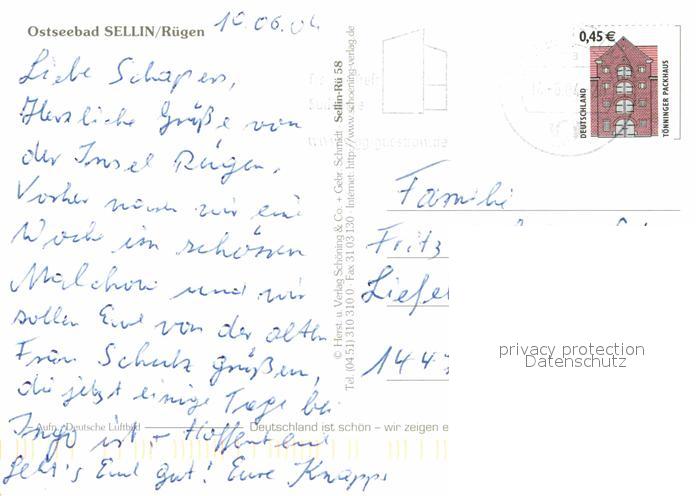 Ostseebad SELLIN/Rügen
10.06.04
Liebe Schapers,
Herzliche Grüße von
der Insel Rügen.
Vorher waren wir eine
Woche im schönen
Malchow und wir
sollen Euch von der alten
Frau Schulz grüßen,
die jetzt einige Tage bei
Ingo ist. - Hoffentlich
geht's Euch gut! Eure Knapps
Aufn.: Deutsche Luftbild
Deutschland ist schön – wir zeigen e
© Herst. u. Verlag Schöning & Co. + Gebr. Schmidt Sellin-Rü 58
Tel. (04 51) 310 310 0 · Fax 31 03 130 · Internet: http://www.schoening-verlag.de
0,45 €
DEUTSCHLAND
TÖNNINGER PACKHAUS
Familie
Fritz
Liefe
144
privacy protection
Datenschutz